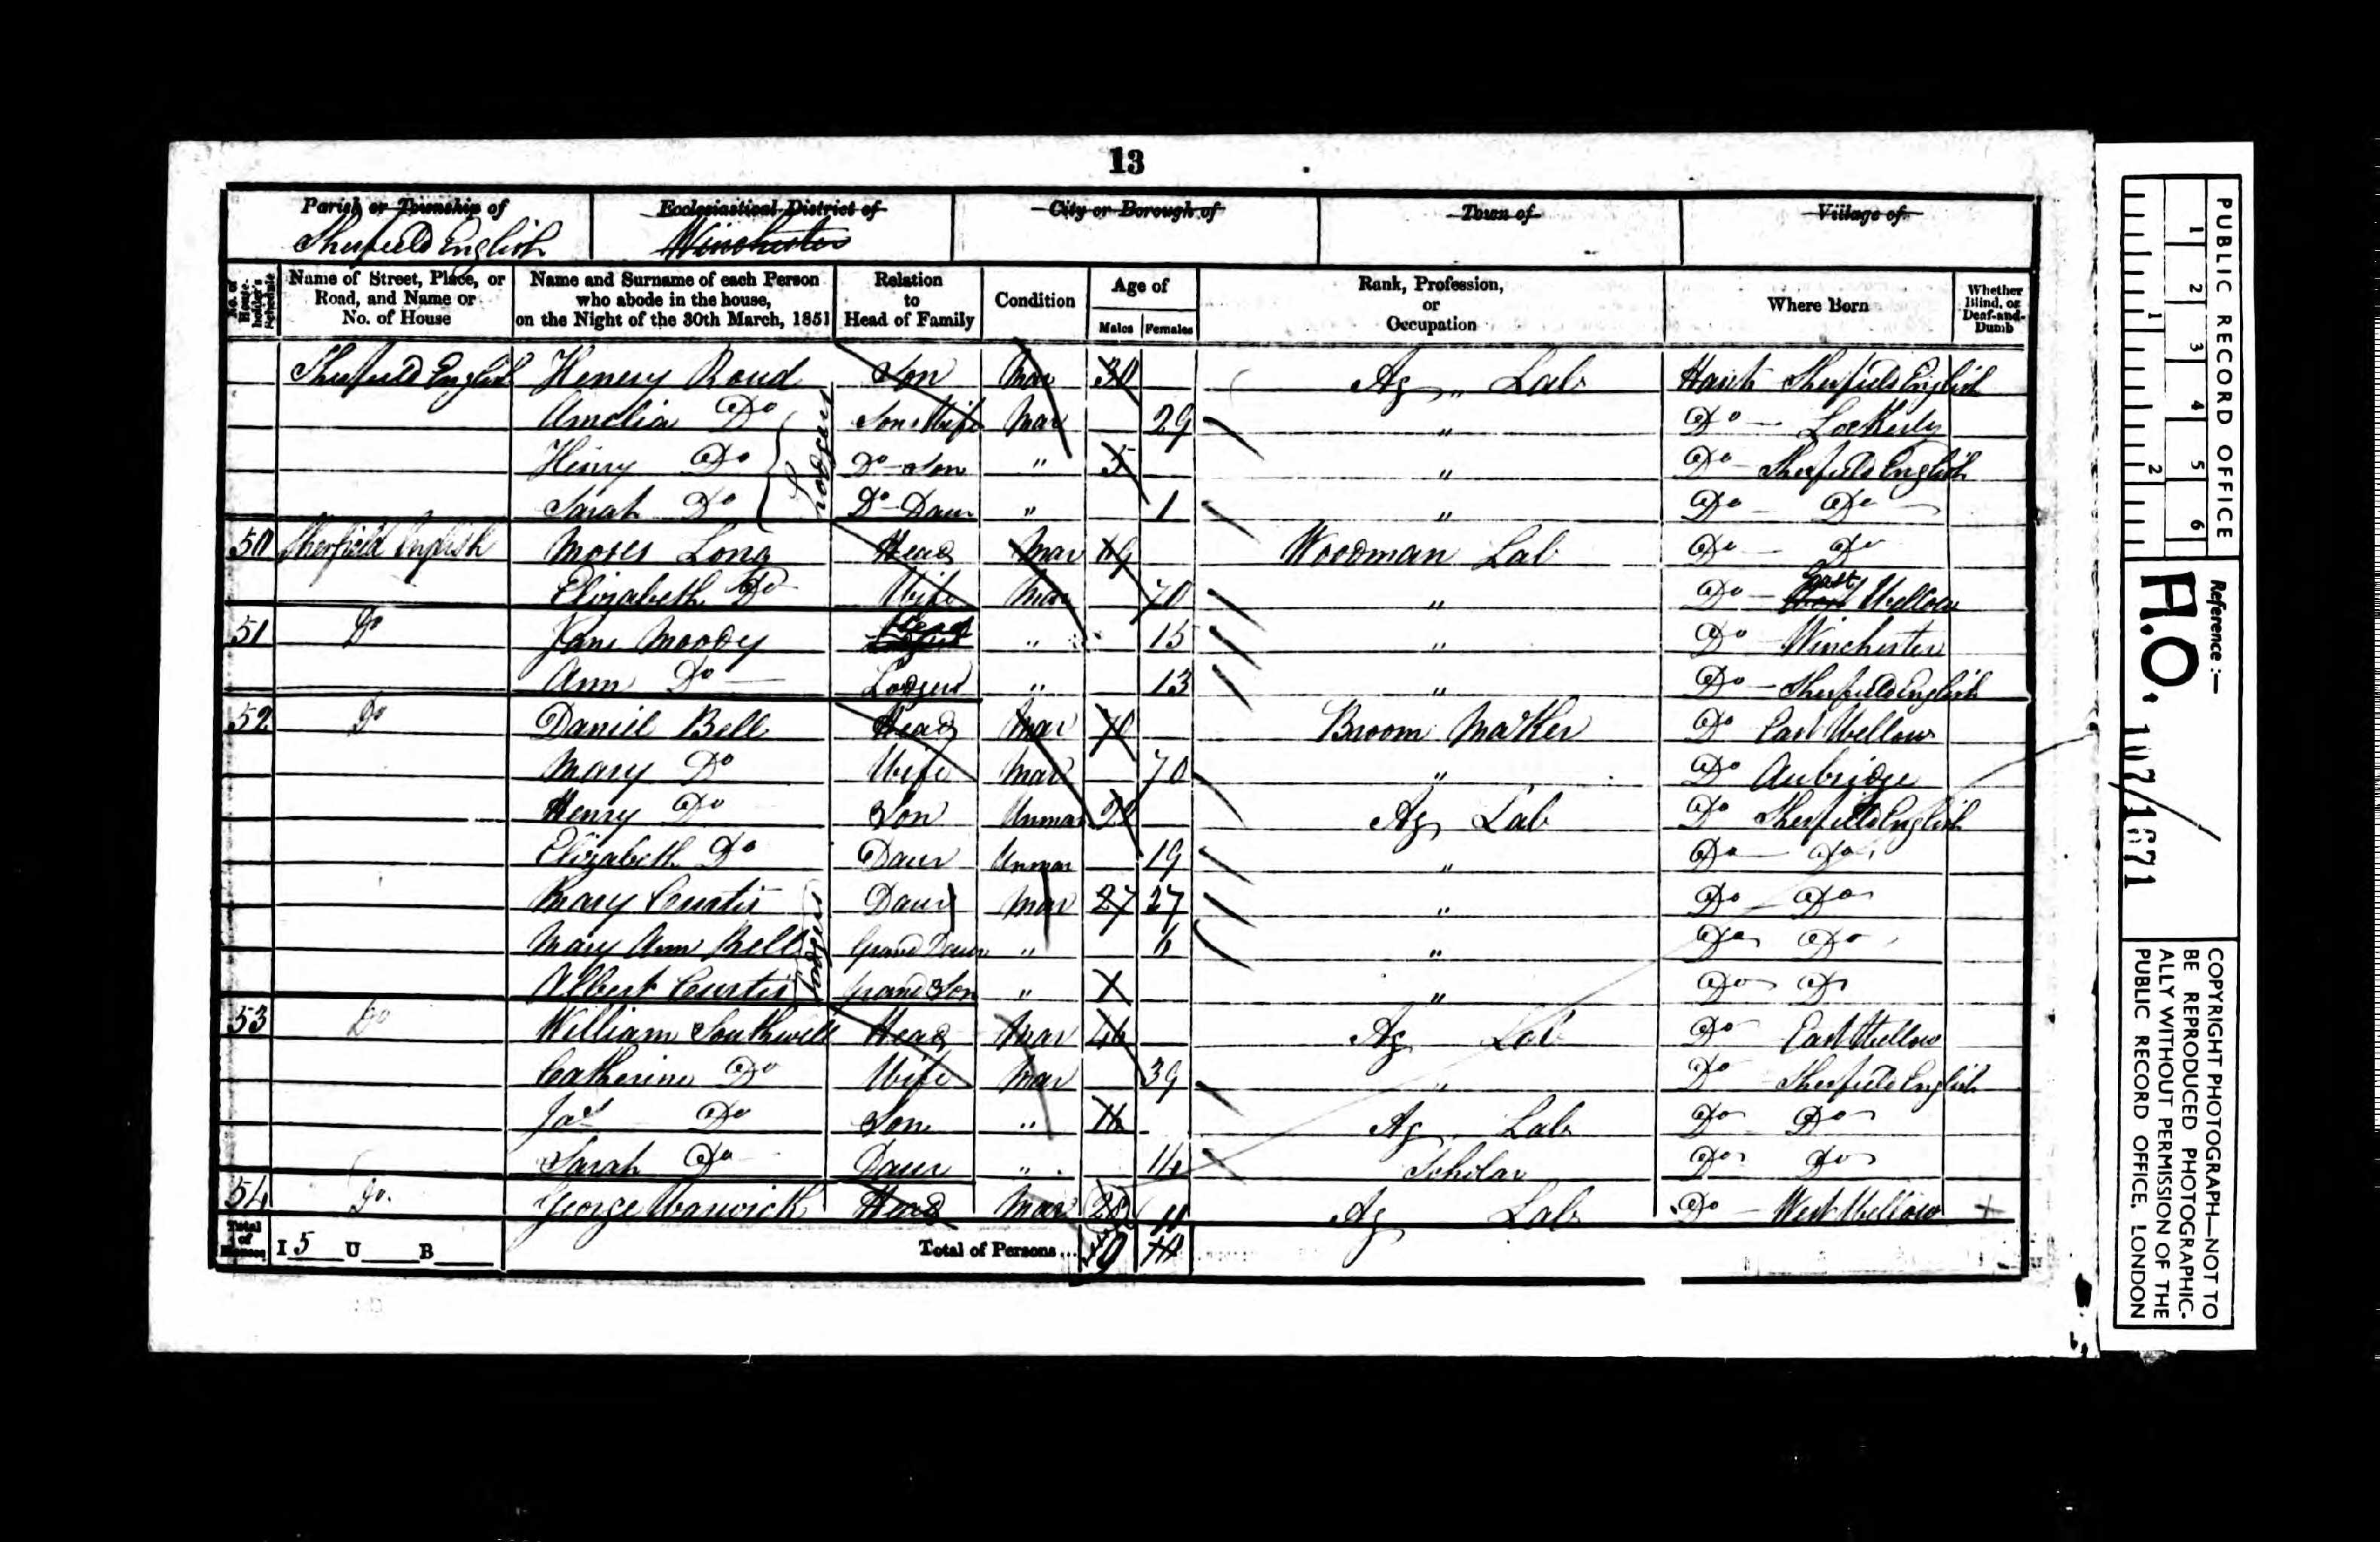 13
Parish or Township of Ecclesiastical District of City or Borough of Town of Village of
Sherfield English Winchester
No. of House-holder's Schedule Name of Street, Place, or Road, and Name or No. of House Name and Surname of each Person who abode in the house, on the Night of the 30th March, 1851 Relation to Head of Family Condition Age of Males Females Rank, Profession, or Occupation Where Born Whether Blind, or Deaf-and-Dumb
Sherfield English Henery Roud Son Mar 30 Ag " Lab Hants Sherfield English
Amelia Do Sons Wife Mar 29 " Do - Lockerly
Henry Do Do - Son " 5 " Do - Sherfield English
Sarah Do Do - Daur " 1 " Do - Do
Lodgers
50 Sherfield English Moses Long Head Mar 69 Woodman Lab Do - Do
Elizabeth Do Wife Mar 70 " Do - East Wellow
51 Do Jane Moody Head " 15 " Do - Winchester
Ann Do Lodger " 13 " Do - Sherfield English
52 Do Daniel Bell Head Mar Broom Maker Do East Wellow
Mary Do Wife Mar 70 " Do Aubridge
Henry Do Son Unmar Ag Lab Do Sherfield English
Elizabeth Do Daur Unmar 19 " Do - Do
Mary Curtis Daur Mar 27 27 " Do Do
Mary Ann Bell Grand Daur " 6 " Do Do
Albert Curtis Grand Son " " Do Do
Lodgers
53 Do William Southwell Head Mar 46 Ag Lab Do East Wellow
Catherine Do Wife Mar 39 " Do Sherfield English
Jas Do Son " 16 Ag Lab Do Do
Sarah Do Daur " 14 Scholar Do Do
54 Do. George Warwick Head Mar 28 Ag Lab Do - West Wellow
11
Total of Houses I 5 U B Total of Persons... 10
PUBLIC RECORD OFFICE
1 2 3 4 5 6
1 2
Reference :-
H.O. 107/1671
COPYRIGHT PHOTOGRAPH—NOT TO
BE REPRODUCED PHOTOGRAPHIC-
ALLY WITHOUT PERMISSION OF THE
PUBLIC RECORD OFFICE, LONDON